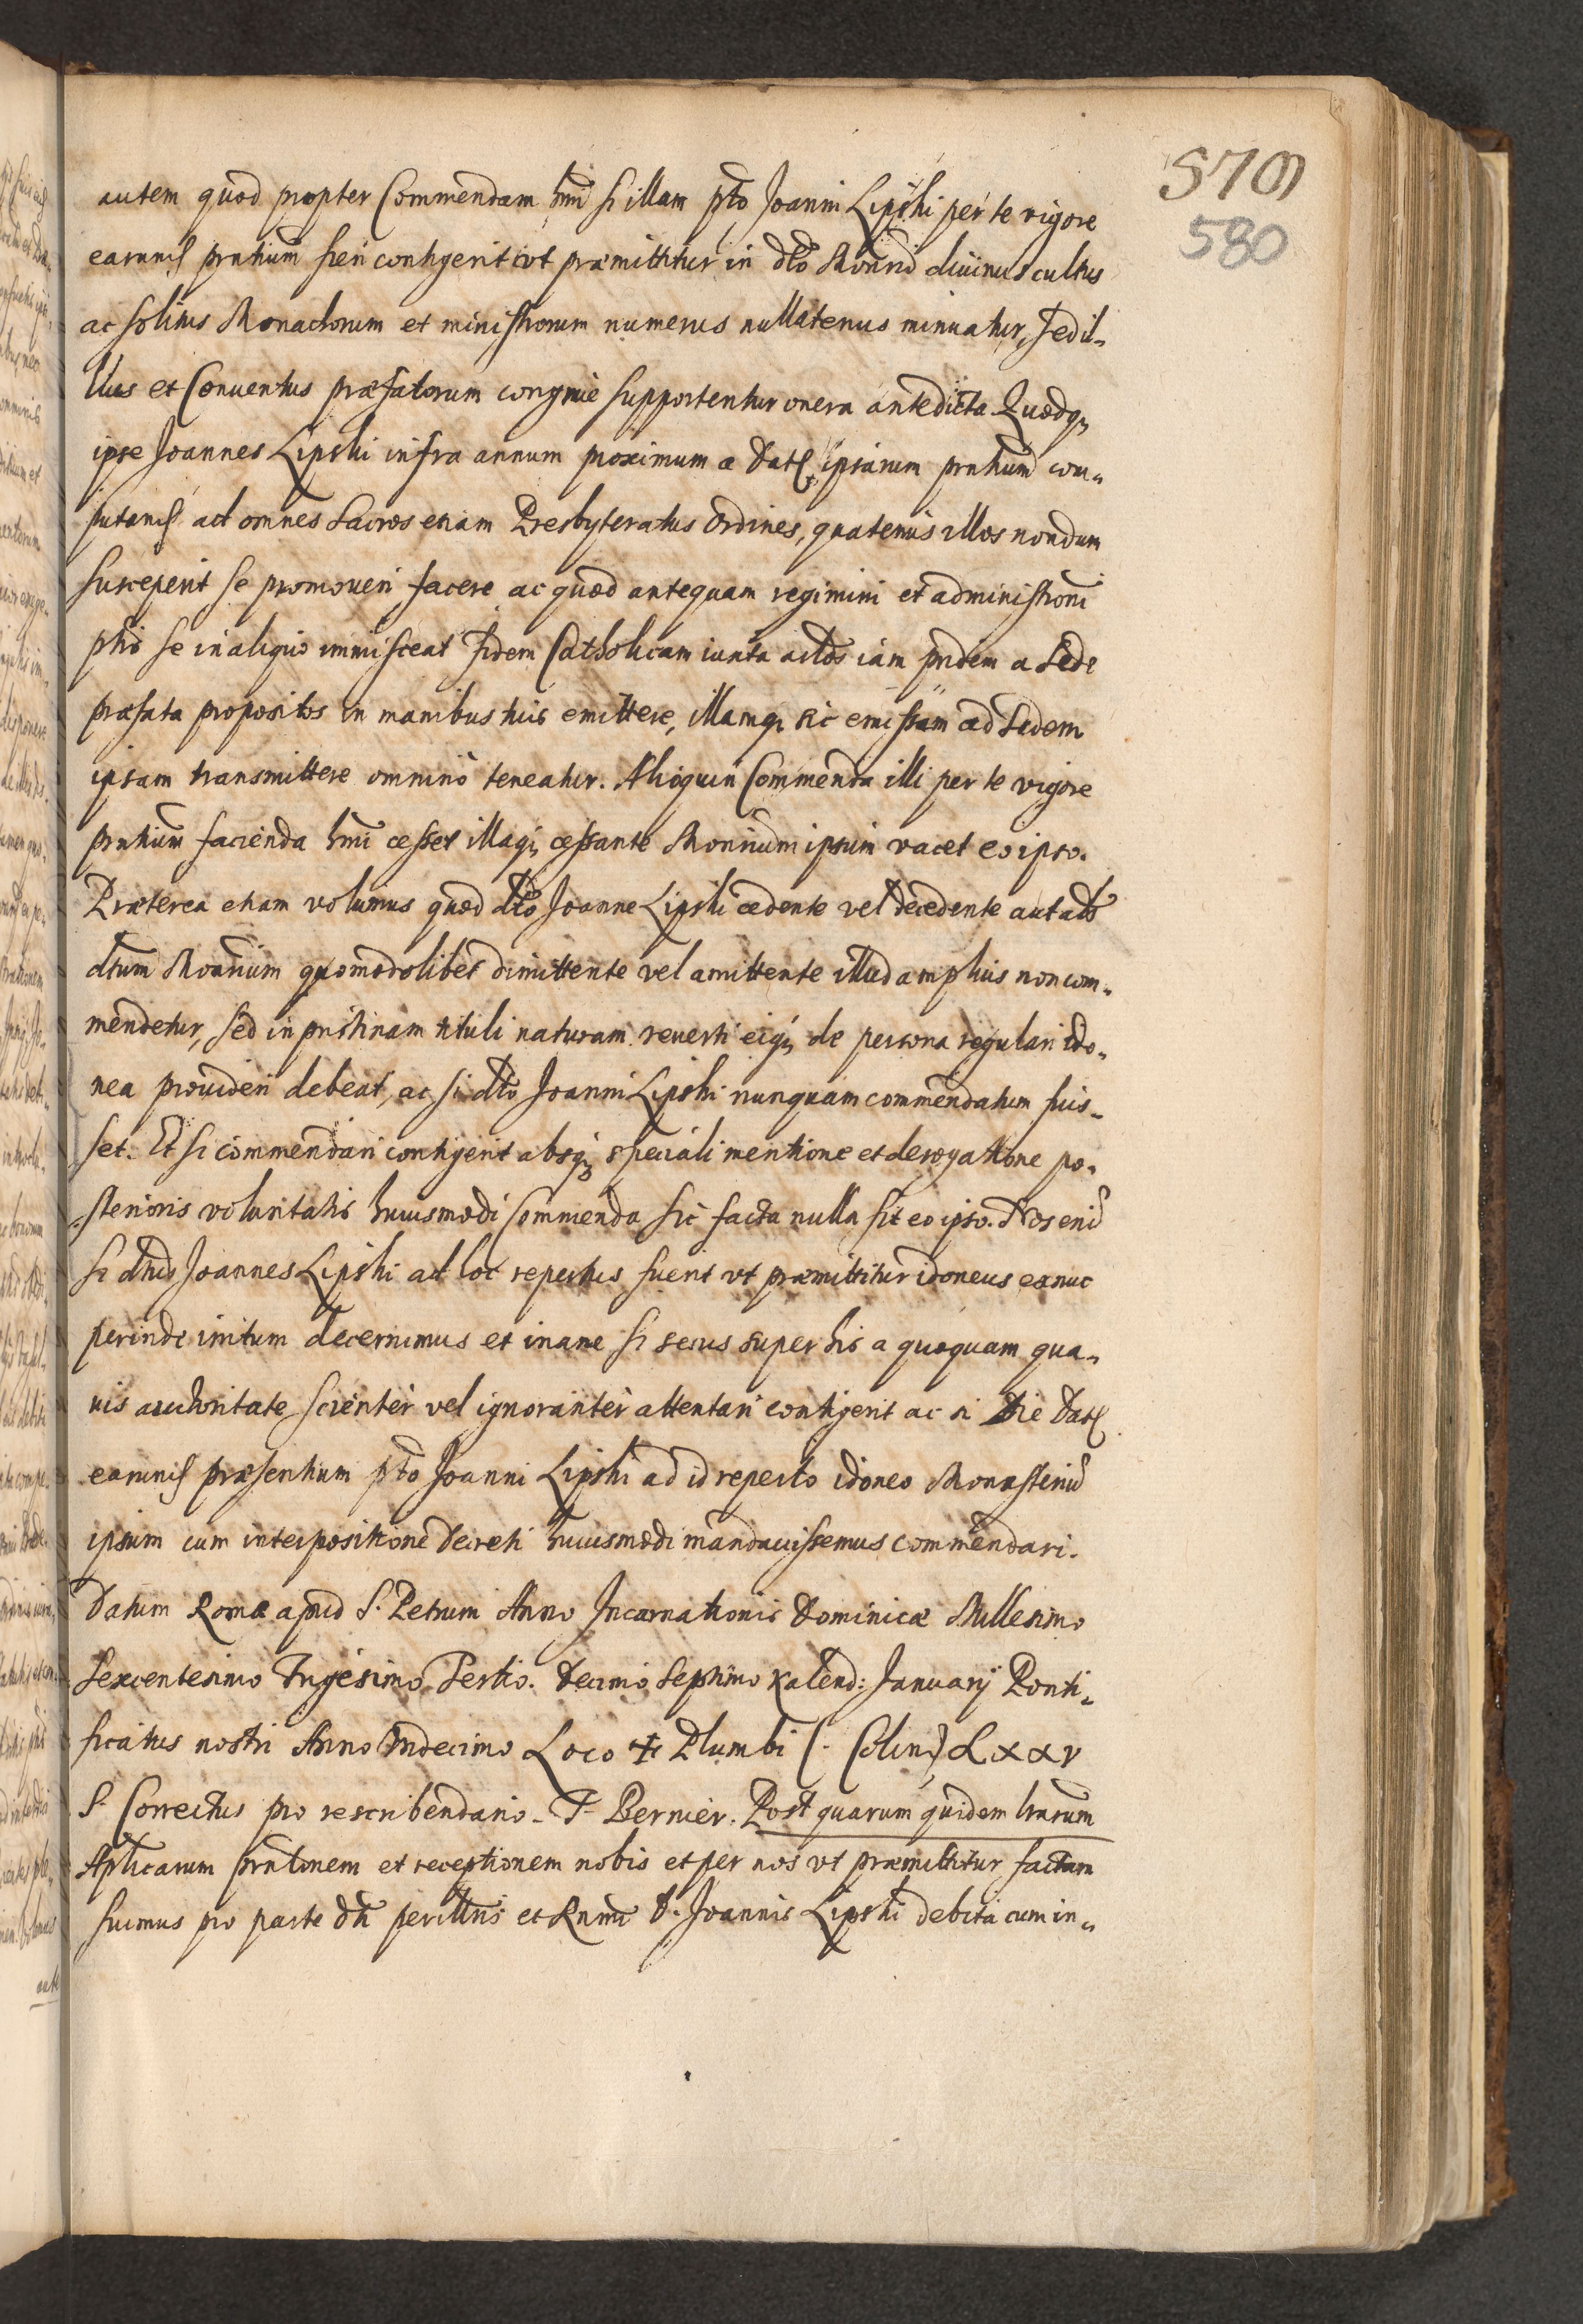 579
580
autem quod propter Commendam hmōi si illam pto Joanni Lipski per te vigore
earund prntium fieri contigerit vt præmittitur in dto Monrio diuinus cultus
ac solitus Monachorum et ministrorum numerus nullatenus minuatur, sed il-
lius et Conuentus præfatorum congrue supportentur onera antedicta Quodq
ipse Joannes Lipski infra annum proximum a Dat ipsarum prntium com-
putand ad omnes Sacros etiam Presbyteratus Ordines, quatenus illos nondum
susceperit se promoueri facere ac quod antequam regimini et administroni
ptis se in aliquo immisceat fidem Catholicam iuxta actlos iam pridem a Sede
præfata propositos in manibus tuis emittere, illamq sic emissam ad Sedem
ipsam transmittere omnino teneatur. Alioquin Commenda illi per te vigore
prntium facienda hmōi cesset illaq cessante Monrium ipsum vacet eo ipso.
Præterea etiam volumus quod dto Joanne Lipski cedente vel decedente aut als
dtum Monrium quomodolibet dimittente vel amittente illud amplius non com-
mendetur, sed in pristinam tituli naturam reuerti eiq de persona regulari ido-
nea prouideri debeat, ac si dto Joanni Lipski nunquam commendatum fuis-
set. Et si commendari contigerit absq speciali mentione et derogatione po-
sterioris voluntatis huiusmodi Commenda sic facta nulla sit eo ipso. Nos enim
si dtus Joannes Lipski ad hoc repertus fuerit vt præmittitur idoneus exnuc
perinde irritum decernimus et inane si secus super his a quoquam qua-
uis authoritate scienter vel ignoranter attentari contigerit ac si Die Dat
earund præsentium pto Joanni Lipski ad id reperto idoneo Monasteriū
ipsum cum interpositione Decreti huiusmodi mandauissemus commendari.
Datum Romæ apud S. Petrum Anno Incarnationis Dominicæ Millesimo
Sexcentesimo Trigesimo Tertio. Decimo Septimo Kalend: Januarij Ponti-
ficatus nostri Anno Vndecimo Loco ✠ Plumbi (. Colin.) Lxxv
S. Correctus pro rescribendario. F. Bernier. Post quarum quidem lrarum
Aplicarum prntonem et receptionem nobis et per nos vt præmittitur factam
fuimus pro parte dti perillris et Rnmi D. Joannis Lipski debita cum in-